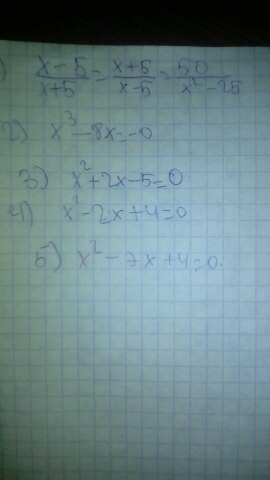 1) x-5/x+5 = x+5/x-5 = 50/x²-25
2) x³-8x=-0
3) x²+2x-5=0
4) x²-2x+4=0
5) x²-7x+4=0.